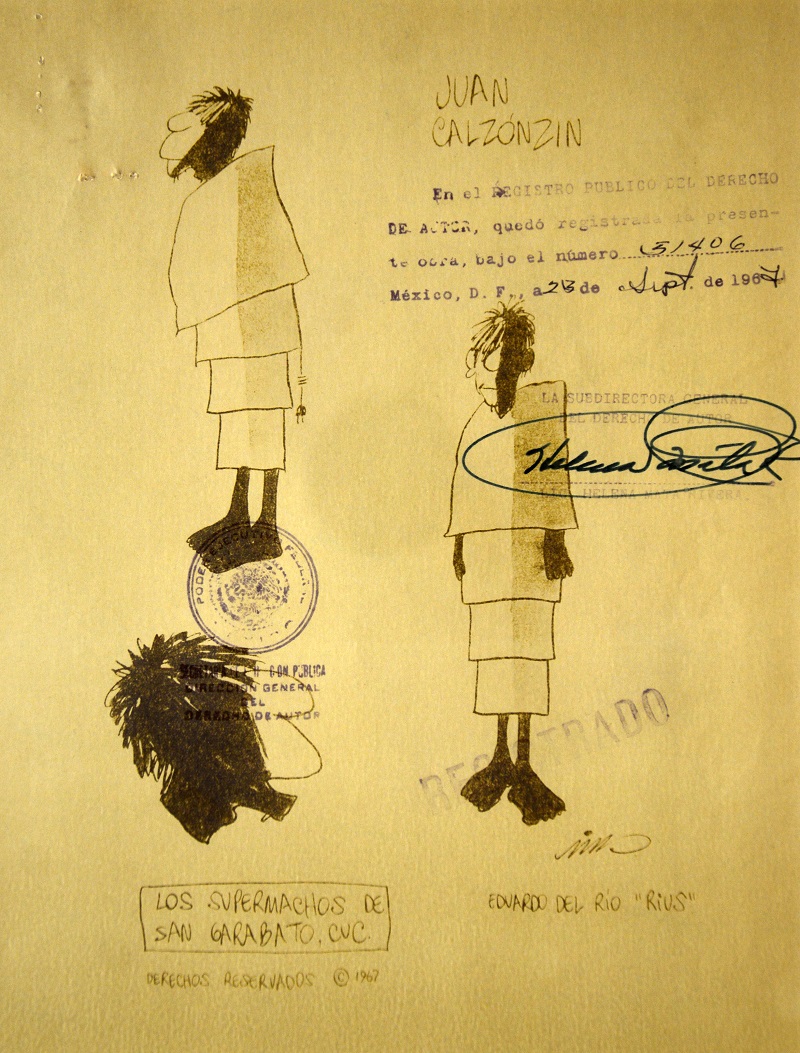 JUAN
CALZÓNZIN
En el REGISTRO PUBLICO DEL DERECHO
DE AUTOR, quedó registrada la presen-
te obra, bajo el número 51406
México, D. F., a 23 de Sept. de 1967
LA SUBDIRECTORA GENERAL
DEL DERECHO DE AUTOR
Helena
LIC. HELENA
PODER EJECUTIVO FEDERAL
PUBLICA
DIRECCION GENERAL
DEL
DERECHO DE AUTOR
REGISTRADO
rius
LOS SUPERMACHOS DE
SAN GARABATO, CUC.
EDUARDO DEL RÍO "RIUS"
DERECHOS RESERVADOS © 1967